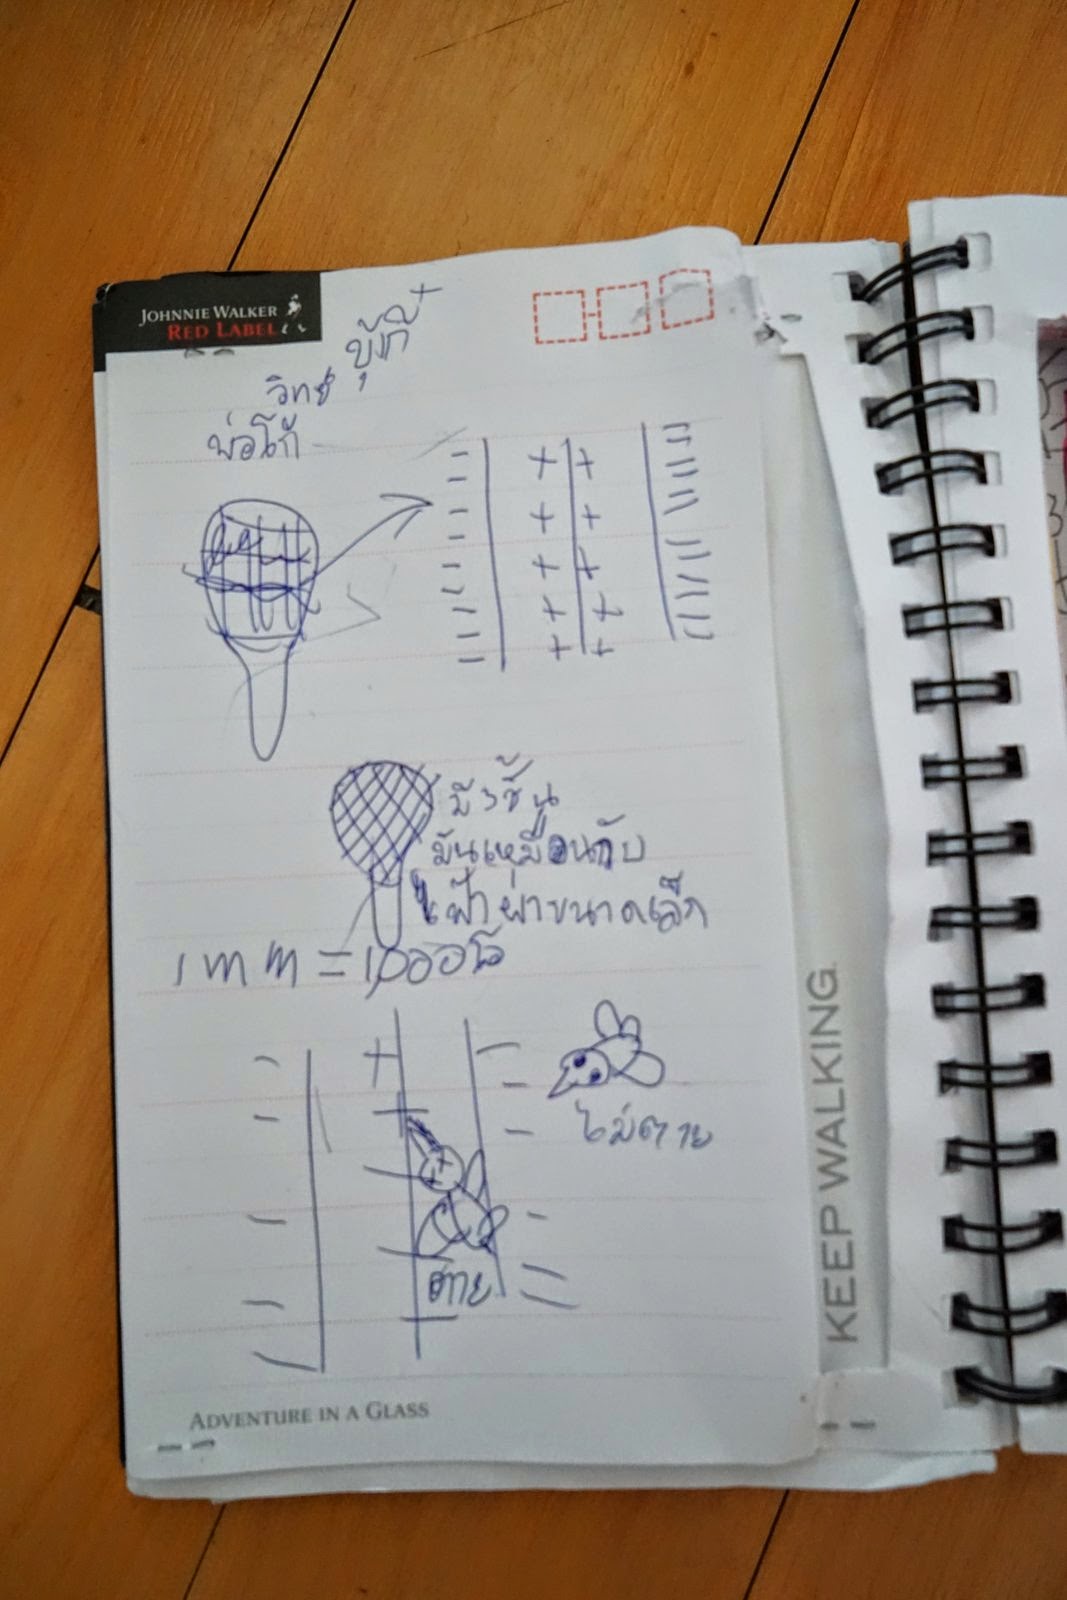 JOHNNIE WALKER
RED LABEL
วิทย์
พ่อโก้
มี 3 ชั้น
มันเหมือนกับ
ฟ้าผ่าขนาดเล็ก
1 mm = 1,000 โว
ไม่ตาย
ตาย
KEEP WALKING.
ADVENTURE IN A GLASS